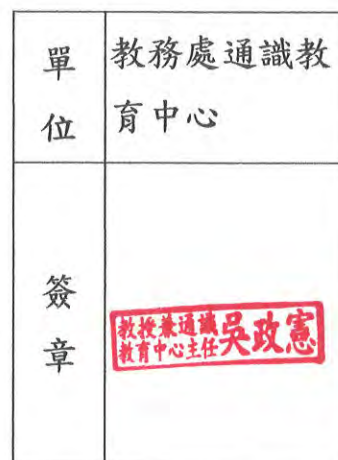 單位
教務處通識教
育中心
簽章
教授兼通識
教育中心主任
吳政憲